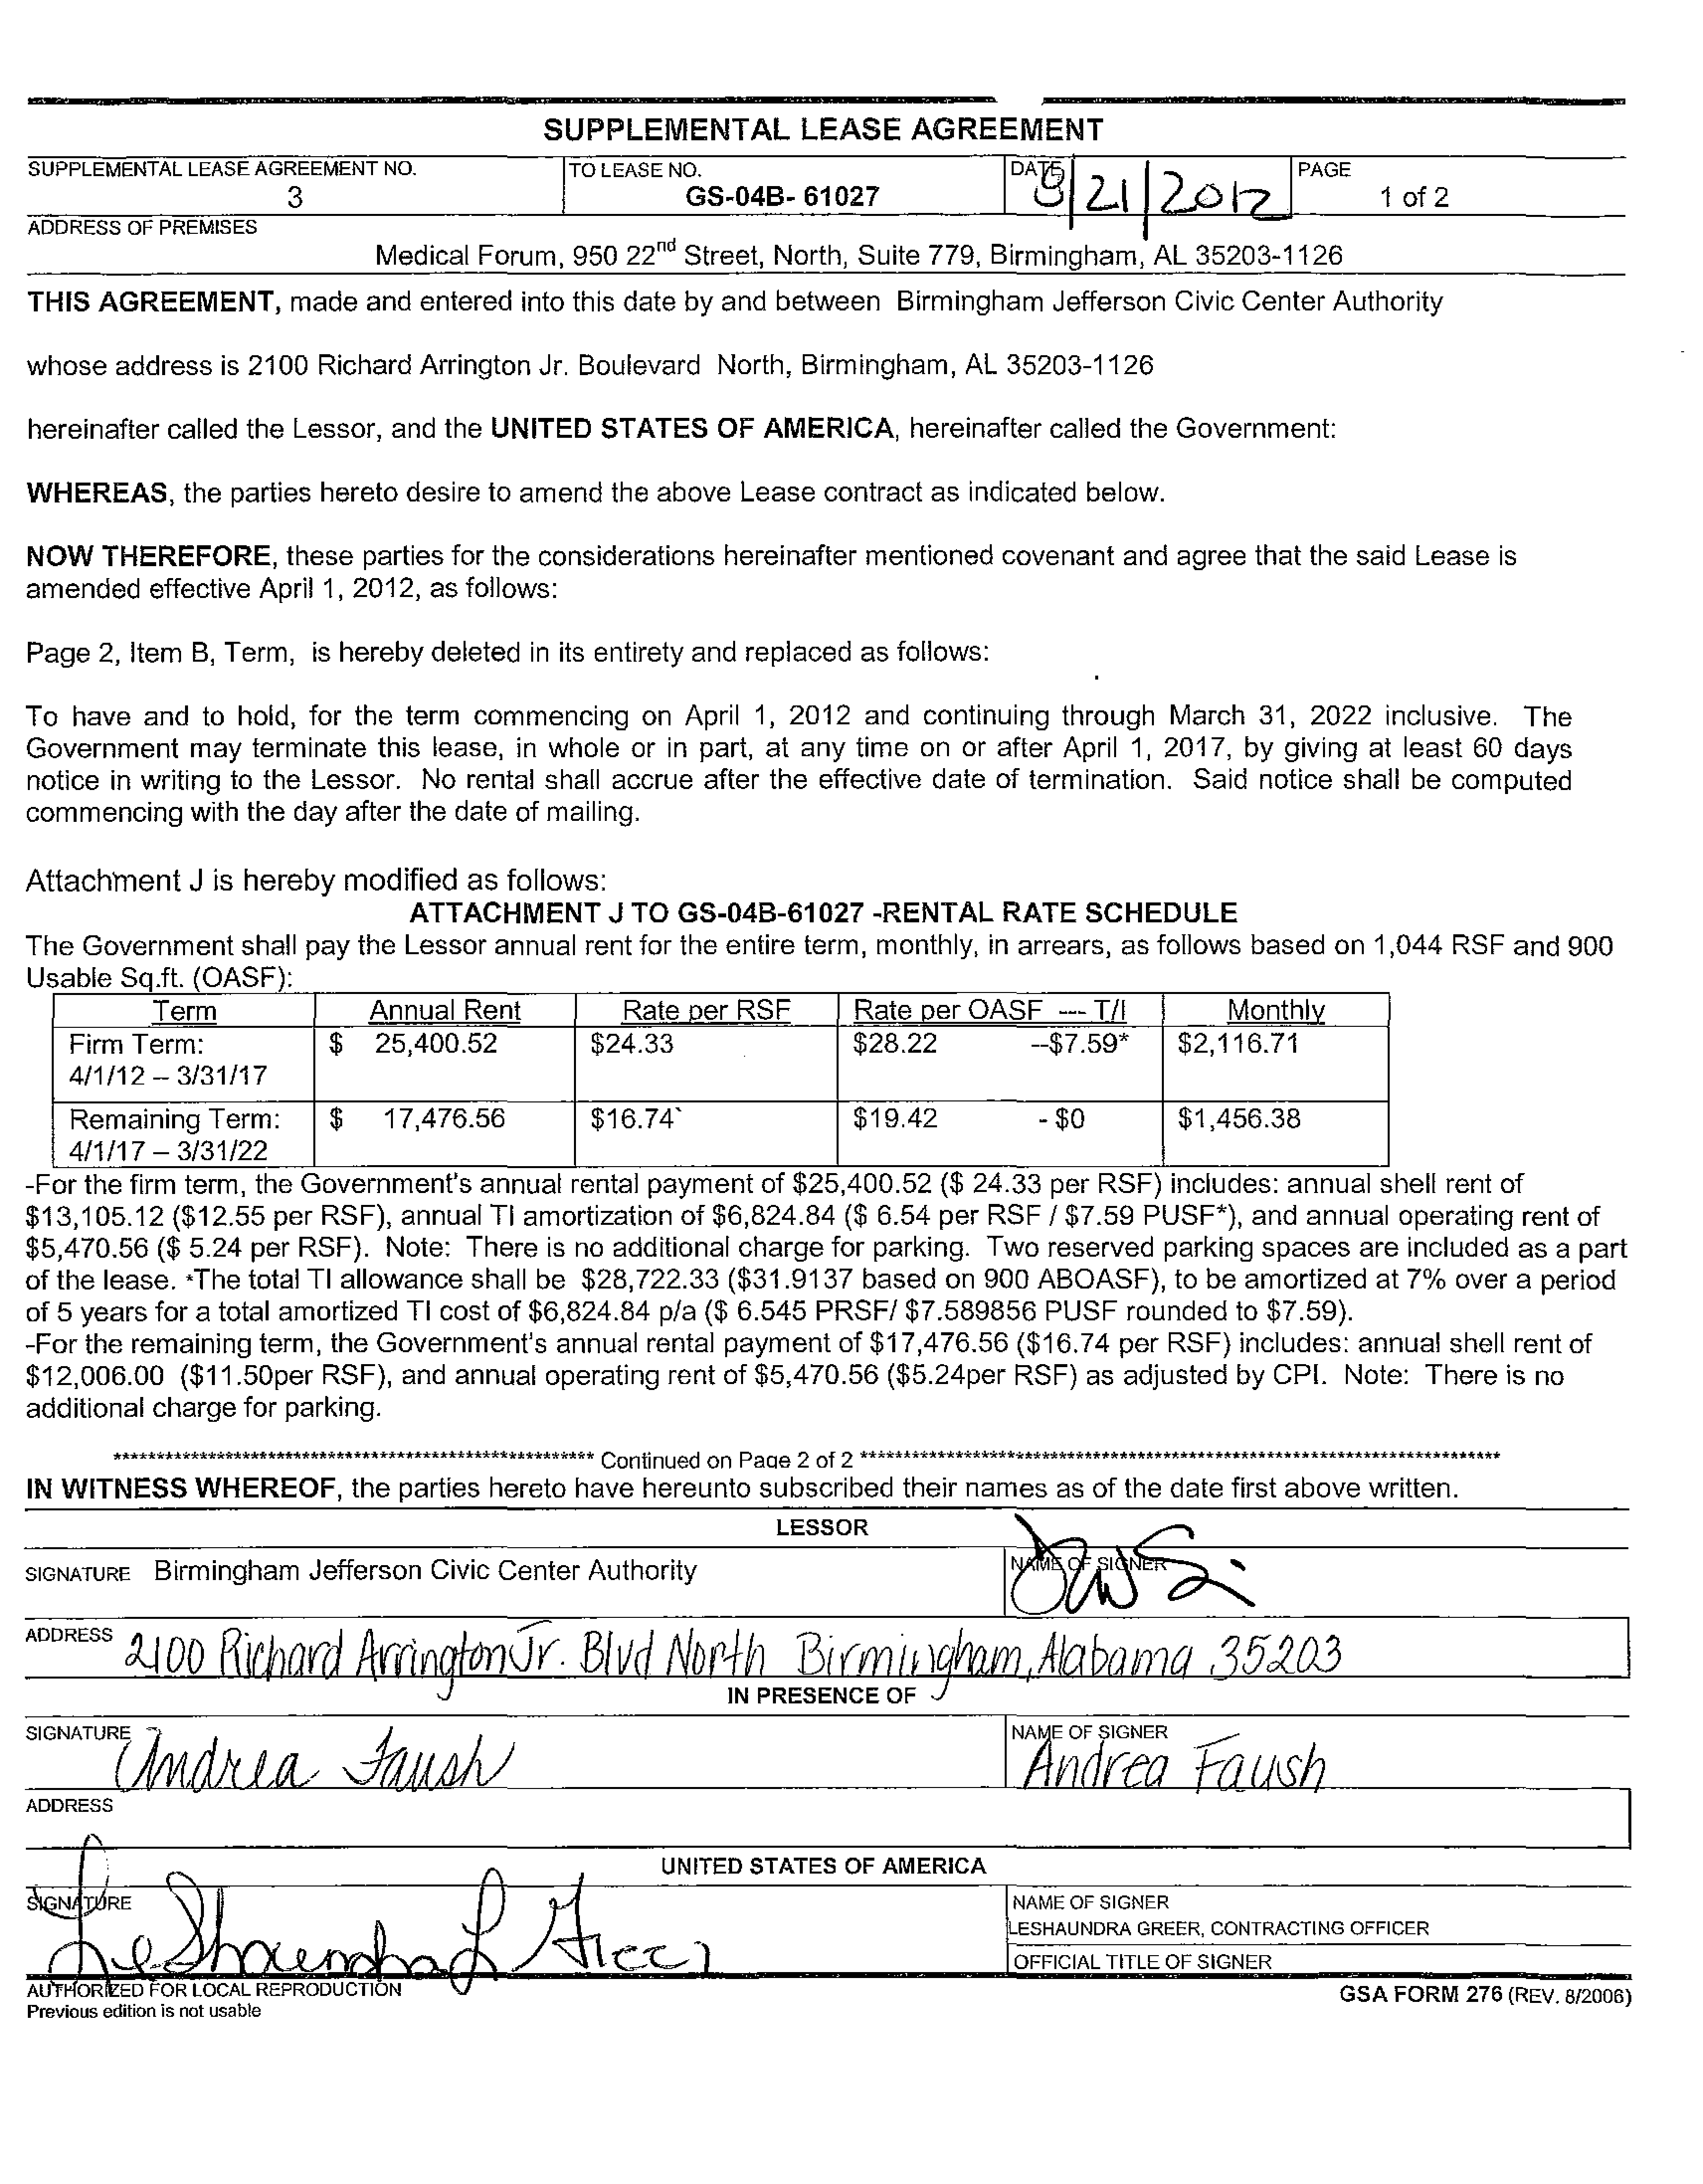 SUPPLEMENTAL LEASE AGREEMENT
SUPPLEMENTAL LEASE AGREEMENT NO.
3
TO LEASE NO.
GS-04B- 61027
DATE
8/21/2012
PAGE
1 of 2
ADDRESS OF PREMISES
Medical Forum, 950 22nd Street, North, Suite 779, Birmingham, AL 35203-1126
THIS AGREEMENT, made and entered into this date by and between Birmingham Jefferson Civic Center Authority
whose address is 2100 Richard Arrington Jr. Boulevard North, Birmingham, AL 35203-1126
hereinafter called the Lessor, and the UNITED STATES OF AMERICA, hereinafter called the Government:
WHEREAS, the parties hereto desire to amend the above Lease contract as indicated below.
NOW THEREFORE, these parties for the considerations hereinafter mentioned covenant and agree that the said Lease is
amended effective April 1, 2012, as follows:
Page 2, Item B, Term, is hereby deleted in its entirety and replaced as follows:
To have and to hold, for the term commencing on April 1, 2012 and continuing through March 31, 2022 inclusive. The
Government may terminate this lease, in whole or in part, at any time on or after April 1, 2017, by giving at least 60 days
notice in writing to the Lessor. No rental shall accrue after the effective date of termination. Said notice shall be computed
commencing with the day after the date of mailing.
Attachment J is hereby modified as follows:
ATTACHMENT J TO GS-04B-61027 -RENTAL RATE SCHEDULE
The Government shall pay the Lessor annual rent for the entire term, monthly, in arrears, as follows based on 1,044 RSF and 900
Usable Sq.ft. (OASF):
Term Annual Rent Rate per RSF Rate per OASF --- T/I Monthly
Firm Term: $ 25,400.52 $24.33 $28.22 --$7.59* $2,116.71
4/1/12 – 3/31/17
Remaining Term: $ 17,476.56 $16.74` $19.42 - $0 $1,456.38
4/1/17 – 3/31/22
-For the firm term, the Government's annual rental payment of $25,400.52 ($ 24.33 per RSF) includes: annual shell rent of
$13,105.12 ($12.55 per RSF), annual TI amortization of $6,824.84 ($ 6.54 per RSF / $7.59 PUSF*), and annual operating rent of
$5,470.56 ($ 5.24 per RSF). Note: There is no additional charge for parking. Two reserved parking spaces are included as a part
of the lease. *The total TI allowance shall be $28,722.33 ($31.9137 based on 900 ABOASF), to be amortized at 7% over a period
of 5 years for a total amortized TI cost of $6,824.84 p/a ($ 6.545 PRSF/ $7.589856 PUSF rounded to $7.59).
-For the remaining term, the Government's annual rental payment of $17,476.56 ($16.74 per RSF) includes: annual shell rent of
$12,006.00 ($11.50per RSF), and annual operating rent of $5,470.56 ($5.24per RSF) as adjusted by CPI. Note: There is no
additional charge for parking.
******************************************************* Continued on Page 2 of 2 *************************************************************************
IN WITNESS WHEREOF, the parties hereto have hereunto subscribed their names as of the date first above written.
LESSOR
SIGNATURE Birmingham Jefferson Civic Center Authority
NAME OF SIGNER
ADDRESS 2100 Richard Arrington Jr. Blvd North Birmingham, Alabama 35203
IN PRESENCE OF
SIGNATURE Andrea Faush
NAME OF SIGNER
Andrea Faush
ADDRESS
UNITED STATES OF AMERICA
SIGNATURE LeShaundra L Greer
NAME OF SIGNER
LESHAUNDRA GREER, CONTRACTING OFFICER
OFFICIAL TITLE OF SIGNER
AUTHORIZED FOR LOCAL REPRODUCTION
Previous edition is not usable
GSA FORM 276 (REV. 8/2006)